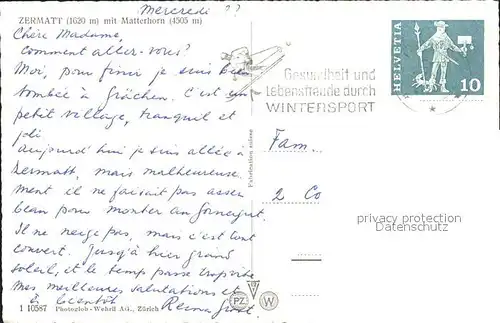 Mercredi ??
ZERMATT (1620 m) mit Matterhorn (4505 m)
Chère Madame,
Comment aller-vous?
Moi, pour finir je suis bien
tombée à Grächen. C'est un
petit village, tranquil et
joli.
Aujourd'hui je suis allée à
Zermatt, mais malheureuse-
ment il ne faisait pas assez
beau pour monter au Gornergrat.
Il ne neige pas, mais c'est tout
couvert. Jusqu'à hier grand
soleil, et le temps passe trop vite
Mes meilleures salutations et
à bientôt
1 10587 Photoglob-Wehrli AG., Zürich
Fabrication suisse
PZ
W
Gesundheit und
Lebensfreude durch
WINTERSPORT
HELVETIA
10
Fam.
2 Co
privacy protection
Datenschutz